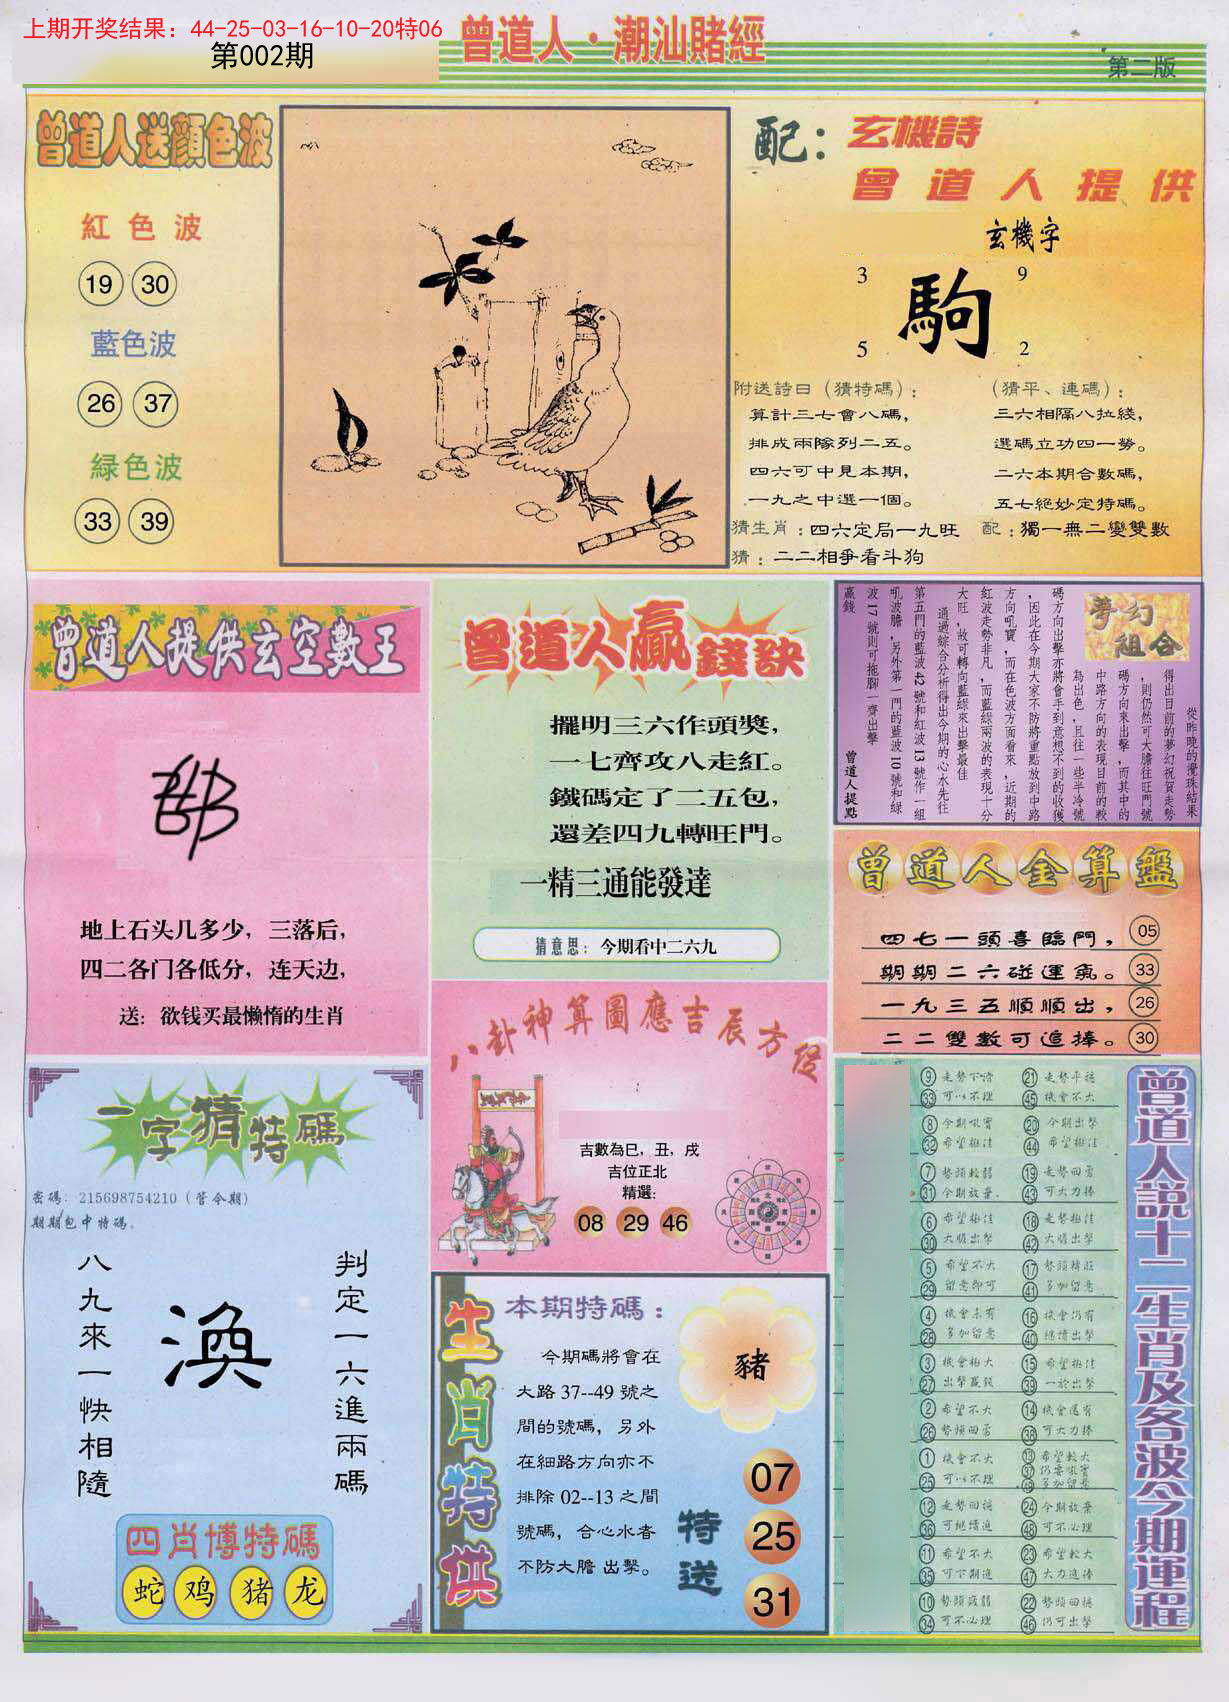 上期开奖结果：44-25-03-16-10-20特06
第002期
曾道人·潮汕賭經
第二版
曾道人送顔色波
紅色波
19 30
藍色波
26 37
緑色波
33 39
配：玄機詩
曾道人提供
玄機字
3 9
駒
5 2
附送詩曰（猜特碼）：
算計三七會八碼，
排成兩隊列二五。
四六可中見本期，
一九之中選一個。
（猜平、連碼）：
三六相隔八拉綫，
選碼立功四一勞。
二六本期合數碼，
五七絕妙定特碼。
猜生肖：四六定局一九旺
配：獨一無二變雙數
猜：二二相爭看斗狗
曾道人提供玄空數王
地上石头几多少，三落后，
四二各门各低分，连天边，
送：欲钱买最懒惰的生肖
曾道人贏錢訣
擺明三六作頭獎，
一七齊攻八走紅。
鐵碼定了二五包，
還差四九轉旺門。
一精三通能發達
猜意思：今期看中二六九
夢幻組合
從昨晚的攪珠結果
得出目前的夢幻祝賀走勢
，則仍然可大膽往旺門號
碼方向來出擊，而其中的
中路方向的表現目前的較
為出色，且往一些半冷號
碼方向出擊亦將會手到意想不到的收獲
，因此在今期大家不防將重點放到中路
方向吼寶，而在色波方面看來，近期的
紅波走勢非凡，而藍綠兩波的表現十分
大旺，故可轉向藍綠來出擊最佳
通過綜合分析得出今期的心水先往
第五門的藍波42號和紅波13號作一組
吼波膽，另外第一門的藍波10號和綠
波17號則可拖腳一齊出擊
贏錢
曾道人提點
曾道人金算盤
四七一頭喜臨門， 05
期期二六碰運氣。 33
一九三五順順出， 26
二二雙數可追捧。 30
八卦神算圖應吉辰方位
吉數為巳，丑，戌
吉位正北
精選：
08 29 46
一字猜特碼
密碼：215698754210（管今期）
期期包中特碼。
八九來一快相隨
渙
判定一六進兩碼
四肖博特碼
蛇 鸡 猪 龙
生肖特供
本期特碼：
今期碼將會在
大路37--49號之
間的號碼，另外
在細路方向亦不
排除02--13之間
號碼，合心水者
不防大膽出擊。
豬
特送
07
25
31
曾道人說十二生肖及各波今期運程
9 走勢下滑 21 走勢平穩
33 可以不理 45 機會不大
8 今期吼寶 20 今期出擊
32 希望極佳 44 希望極佳
7 勢頭較弱 19 走勢回落
31 今期放棄。 43 可大力捧
6 希望極佳 18 走勢極佳
30 大膽出擊 42 大膽出擊
5 希望不大 17 勢頭精旺
29 留意即可 41 多加留意
4 機會未有 16 機會仍有
28 多加留意 40 繼續出擊
3 機會極大 15 希望極佳
27 出擊贏錢 39 一於出擊
2 希望不大 14 機會還有
26 勢頭回落 38 可大力捧
1 機會不大 13 希望較大
37 仍要吼寶
25 可以不理 49 多加留意
12 走勢回穩 24 今期放棄
36 可繼續追 48 可不必理
11 希望不大 23 希望較大
35 可下期追 47 大力追捧
10 勢頭疲弱 22 勢頭回穩
34 可不必理 46 仍可出擊